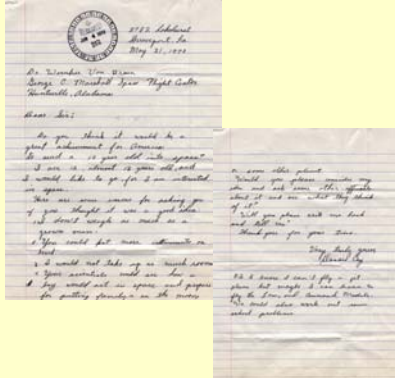 Shreveport, La
May 21, 1970
Dr. Wernher Von Braun
George C. Marshall Space Flight Center
Huntsville, Alabama
Dear Sir:
Do you think it would be a
great achievement for America
to send a 12 year old into space?
I am 12, almost 13 years old, and
I would like to go, for I am interested
in space.
Here are some reasons for asking you
if you thought it was a good idea:
I don't weigh as much as a
grown man.
2 You could put more instruments on
board
3 I would not take up as much room
4 Your scientists could see how a
boy would act in space and prepare
for putting families on the moon
or some other planet.
Would you please consider my
idea and ask some other officials
about it and see what they think
of it?
Will you please write me back
and tell me?
Thank you for your time.
Very truly yours
P.S. I know I can't fly a jet
plane but maybe I can learn to
fly the Lunar and Command Module.
We could also work out some
school problems.